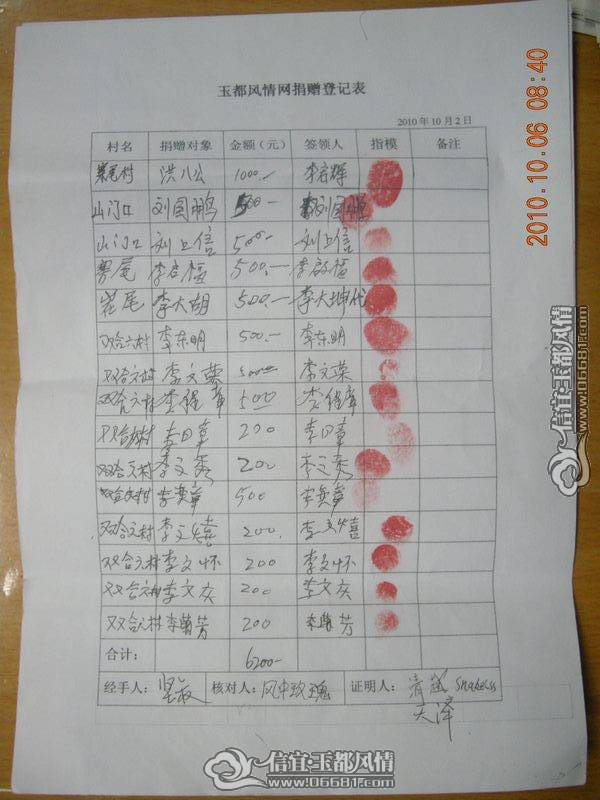 玉都风情网捐赠登记表
2010年10月2日
村名 捐赠对象 金额（元） 签领人 指模 备注
寨尾村 洪八公 1000.- 李启辉
山门口 刘国鹏 500- 刘国鹏
山门口 刘上信 500- 刘上信
寨尾 李启福 500.- 李啟福
岩尾 李大胡 500.- 李大坤代
双合六村 李东明 500.- 李东明
双合六村 李文荣 500 李文荣
双合六村 500
双合六村 李日章 200 李日章
双合六村 李文 200 李文
双合六村 500
双合六村 李文禧 200. 李文禧
双合六村 李文怀 200 李文怀
双合六村 李文庆 200 李文庆
双合六村 李 芳 200 李 芳
合计： 6200-
经手人： 核对人：风中玫瑰 证明人： snakess
天泽
2010.10.06 08:40
信宜·玉都风情
www.06681.com
信宜·玉都风情
www.06681.com